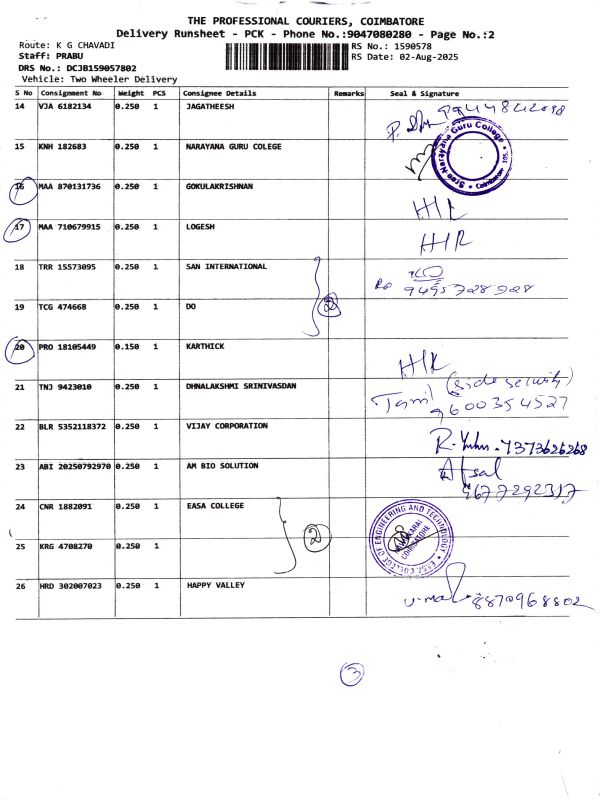 THE PROFESSIONAL COURIERS, COIMBATORE
Delivery Runsheet - PCK - Phone No.:9047080280 - Page No.:2
Route: K G CHAVADI
RS No.: 1590578
Staff: PRABU
RS Date: 02-Aug-2025
DRS No.: DCJB159057802
Vehicle: Two Wheeler Delivery
S No Consignment No Weight PCS Consignee Details Remarks Seal & Signature
14 VJA 6182134 0.250 1 JAGATHEESH
15 KNH 182683 0.250 1 NARAYANA GURU COLEGE
Sree Narayana Guru College • Coimbatore 105
16 MAA 870131736 0.250 1 GOKULAKRISHNAN H/K
17 MAA 710679915 0.250 1 LOGESH H/K
18 TRR 15573095 0.250 1 SAN INTERNATIONAL
2
19 TCG 474668 0.250 1 DO
20 PRO 18105449 0.150 1 KARTHICK H/K
21 TNJ 9423010 0.250 1 DHNALAKSHMI SRINIVASDAN Tamil (side security)
9600354527
22 BLR 5352118372 0.250 1 VIJAY CORPORATION 7373626268
23 ABI 20250792970 0.250 1 AM BIO SOLUTION Afsal
9677292317
24 CNR 1882091 0.250 1 EASA COLLEGE
2
EASA COLLEGE OF ENGINEERING AND TECHNOLOGY
NAVAKKARAI
COIMBATORE
25 KRG 4708270 0.250 1
26 HRD 302007023 0.250 1 HAPPY VALLEY 8870968802
3